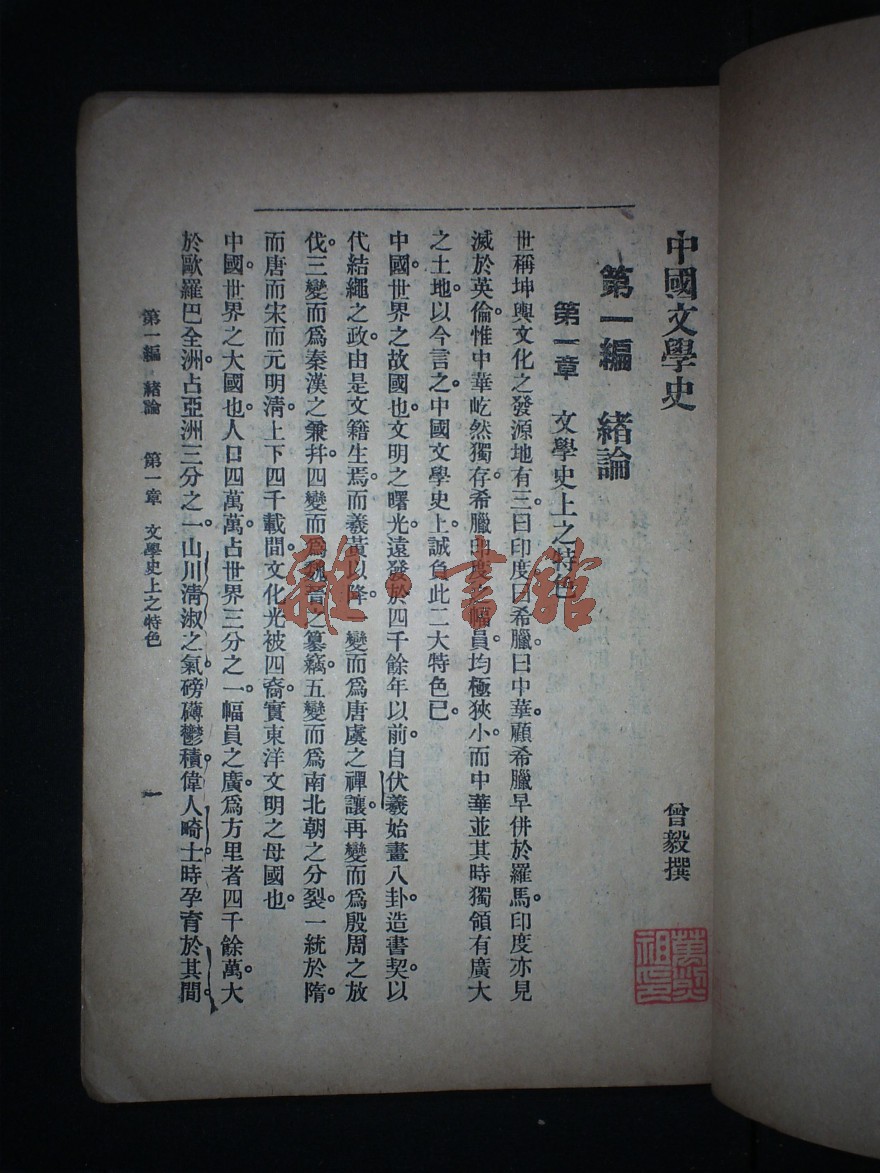 中國文學史
曾毅撰
第一編　緒論
第一章　文學史上之特色
世稱坤輿文化之發源地有三。曰印度。曰希臘。曰中華。顧希臘早併於羅馬。印度亦見
滅於英倫。惟中華屹然獨存。希臘印度之幅員。均極狹小。而中華並其時獨領有廣大
之土地。以今言之。中國文學史上。誠負此二大特色已。
中國。世界之故國也。文明之曙光。遠發於四千餘年以前。自伏羲始畫八卦。造書契。以
代結繩之政。由是文籍生焉。而羲黃以降。一變而爲唐虞之禪讓。再變而爲殷周之放
伐。三變而爲秦漢之兼幷。四變而爲魏晉之篡竊。五變而爲南北朝之分裂。一統於隋。
而唐而宋而元明清。上下四千載間。文化光被四裔。實東洋文明之母國也。
中國。世界之大國也。人口四萬萬。占世界三分之一。幅員之廣。爲方里者四千餘萬。大
於歐羅巴全洲。占亞洲三分之一。山川清淑之氣。磅礴鬱積。偉人畸士。時孕育於其間。
第一編　緒論　第一章　文學史上之特色
一
雜·書館